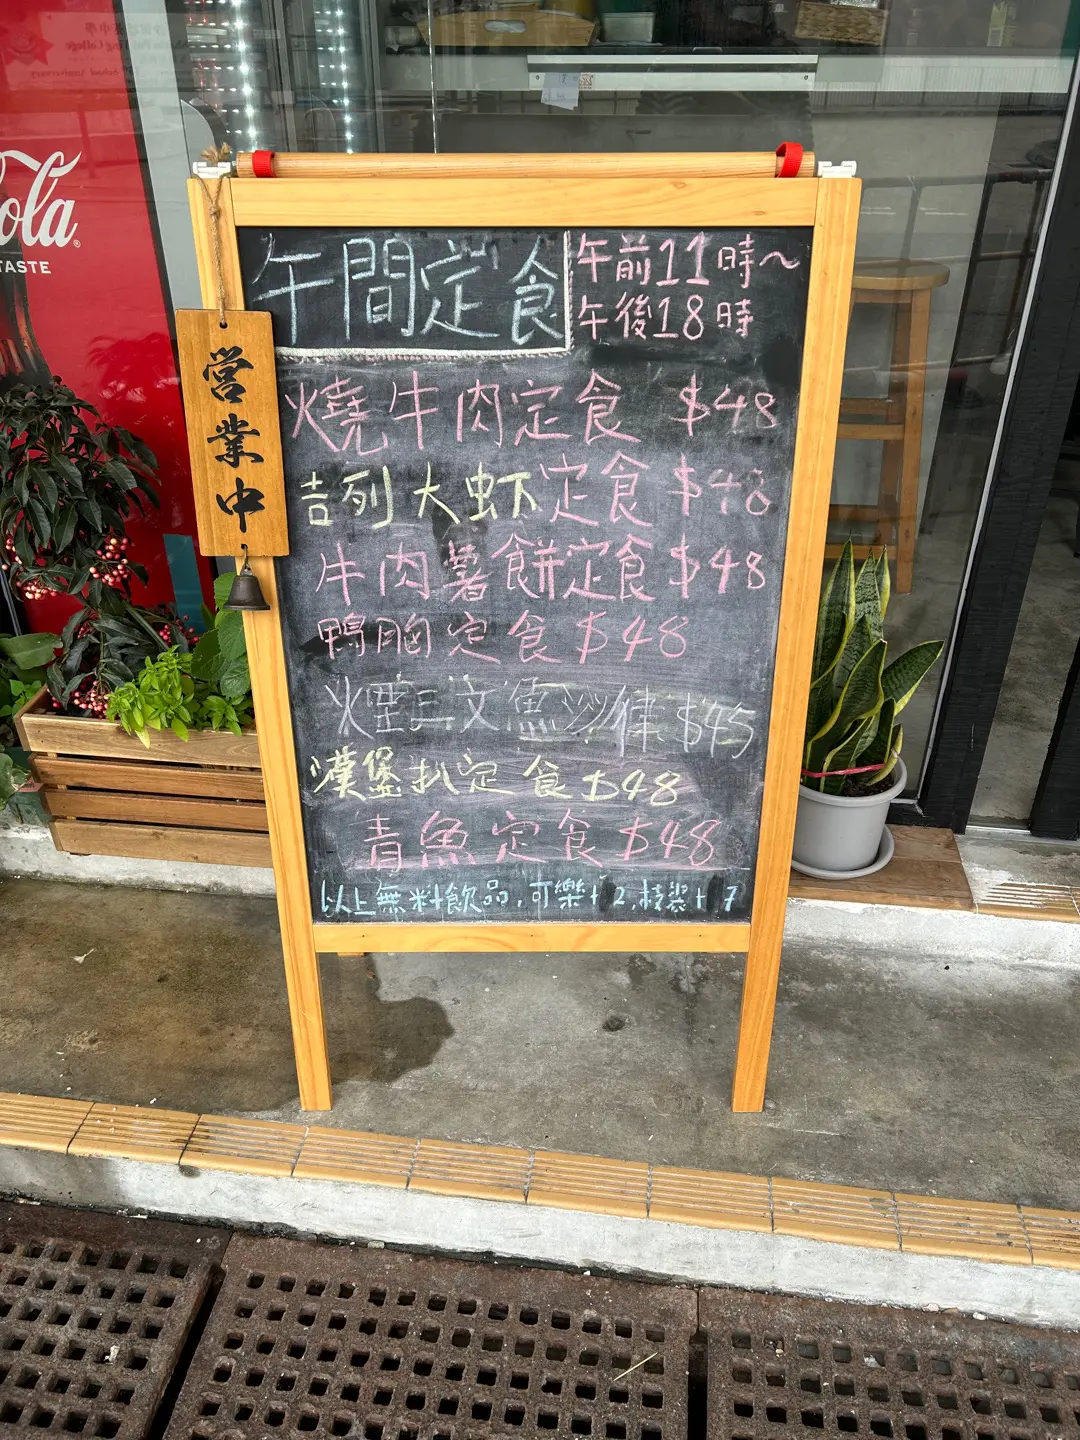 午間定食
午前11時～
午後18時
燒牛肉定食 $48
吉列大虾定食 $48
牛肉薯餅定食 $48
鴨胸定食 $48
煙三文魚沙律 $45
漢堡扒定食 $48
青魚定食 $48
以上無料飲品，可樂+2,樽裝+7
営業中
ola
TASTE